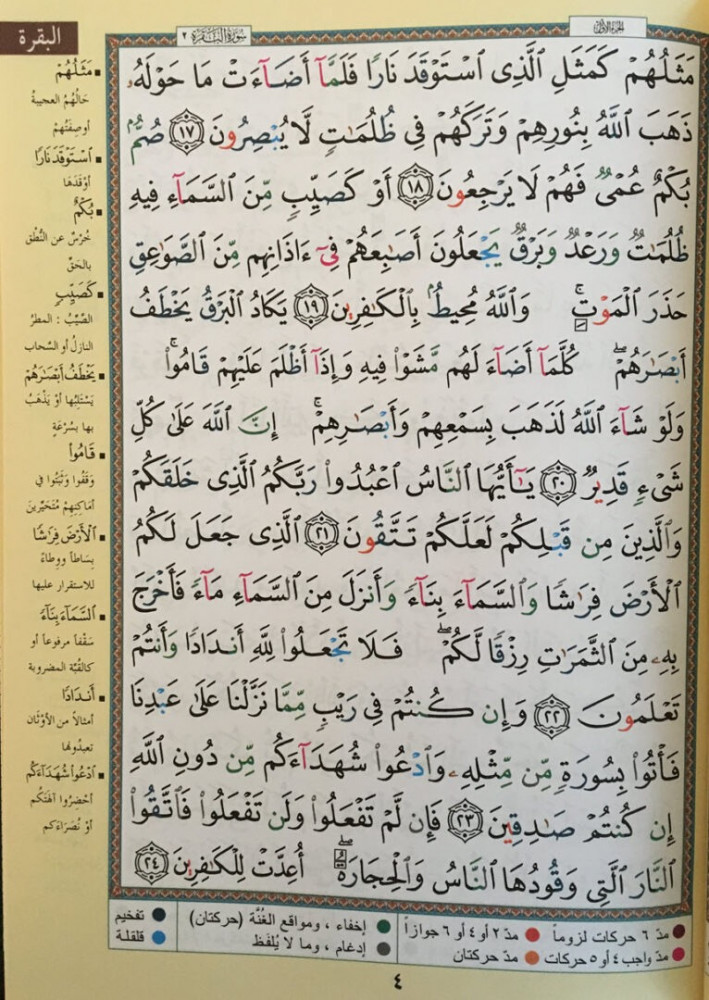 الجزء الأول
سورة البقرة ٢
البقرة
مَثَلُهُمْ كَمَثَلِ ٱلَّذِى ٱسْتَوْقَدَ نَارًا فَلَمَّآ أَضَآءَتْ مَا حَوْلَهُۥ
ذَهَبَ ٱللَّهُ بِنُورِهِمْ وَتَرَكَهُمْ فِى ظُلُمَٰتٍ لَّا يُبْصِرُونَ ١٧ صُمٌّۢ
بُكْمٌ عُمْىٌ فَهُمْ لَا يَرْجِعُونَ ١٨ أَوْ كَصَيِّبٍ مِّنَ ٱلسَّمَآءِ فِيهِ
ظُلُمَٰتٌ وَرَعْدٌ وَبَرْقٌ يَجْعَلُونَ أَصَٰبِعَهُمْ فِىٓ ءَاذَانِهِم مِّنَ ٱلصَّوَٰعِقِ
حَذَرَ ٱلْمَوْتِ ۚ وَٱللَّهُ مُحِيطٌۢ بِٱلْكَٰفِرِينَ ١٩ يَكَادُ ٱلْبَرْقُ يَخْطَفُ
أَبْصَٰرَهُمْ ۖ كُلَّمَآ أَضَآءَ لَهُم مَّشَوْا۟ فِيهِ وَإِذَآ أَظْلَمَ عَلَيْهِمْ قَامُوا۟ ۚ
وَلَوْ شَآءَ ٱللَّهُ لَذَهَبَ بِسَمْعِهِمْ وَأَبْصَٰرِهِمْ ۚ إِنَّ ٱللَّهَ عَلَىٰ كُلِّ
شَىْءٍ قَدِيرٌ ٢٠ يَٰٓأَيُّهَا ٱلنَّاسُ ٱعْبُدُوا۟ رَبَّكُمُ ٱلَّذِى خَلَقَكُمْ
وَٱلَّذِينَ مِن قَبْلِكُمْ لَعَلَّكُمْ تَتَّقُونَ ٢١ ٱلَّذِى جَعَلَ لَكُمُ
ٱلْأَرْضَ فِرَٰشًا وَٱلسَّمَآءَ بِنَآءً وَأَنزَلَ مِنَ ٱلسَّمَآءِ مَآءً فَأَخْرَجَ
بِهِۦ مِنَ ٱلثَّمَرَٰتِ رِزْقًا لَّكُمْ ۖ فَلَا تَجْعَلُوا۟ لِلَّهِ أَندَادًا وَأَنتُمْ
تَعْلَمُونَ ٢٢ وَإِن كُنتُمْ فِى رَيْبٍ مِّمَّا نَزَّلْنَا عَلَىٰ عَبْدِنَا
فَأْتُوا۟ بِسُورَةٍ مِّن مِّثْلِهِۦ وَٱدْعُوا۟ شُهَدَآءَكُم مِّن دُونِ ٱللَّهِ
إِن كُنتُمْ صَٰدِقِينَ ٢٣ فَإِن لَّمْ تَفْعَلُوا۟ وَلَن تَفْعَلُوا۟ فَٱتَّقُوا۟
ٱلنَّارَ ٱلَّتِى وَقُودُهَا ٱلنَّاسُ وَٱلْحِجَارَةُ ۖ أُعِدَّتْ لِلْكَٰفِرِينَ ٢٤
مَثَلُهُمْ
حَالُهُمُ العجيبةُ
أو صِفَتُهمْ
ٱسْتَوْقَدَ نَارًا
أوْقَدَهَا
بُكْمٌ
خُرْسٌ عن النُّطْقِ
بالحَقِّ
كَصَيِّبٍ
الصَّيِّبُ : المطرُ
النازلُ أو السَّحاب
يَخْطَفُ أَبْصَٰرَهُمْ
يَسْتَلِبُها أو يَذْهَبُ
بها بسُرْعَةٍ
قَامُوا۟
وَقَفُوا وَثَبَتُوا في
أماكِنِهِمْ مُتَحَيِّرينَ
ٱلْأَرْضَ فِرَٰشًا
بِسَاطاً ووِطَاءً
للاستقرار عليها
ٱلسَّمَآءَ بِنَآءً
سَقْفاً مرفوعاً أو
كالقُبَّة المضروبة
أَندَادًا
أمثالاً من الأوْثَان
تعبدُونها
ٱدْعُوا۟ شُهَدَآءَكُم
أحْضِرُوا آلهَتَكُم
أوْ نُصَرَاءَكم
مدّ ٦ حركات لزوماً مدّ ٢ أو ٤ أو ٦ جوازاً إخفاء ، ومواقع الغُنَّة (حركتان) تفخيم
مدّ واجب ٤ أو ٥ حركات مدّ حركتان إدغام ، وما لا يُلفَظ قلقلة
٤